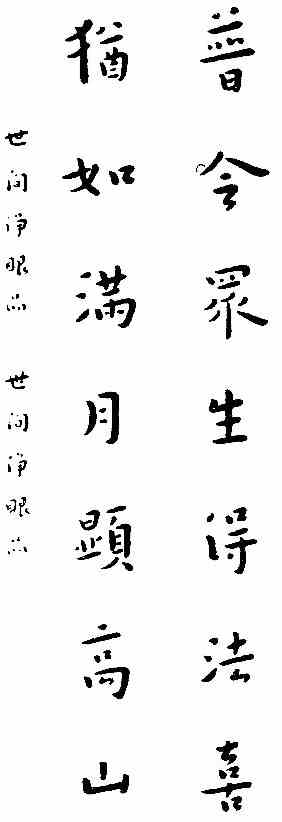 普令眾生得法喜
猶如滿月顯高山
世间淨眼品 世间淨眼品